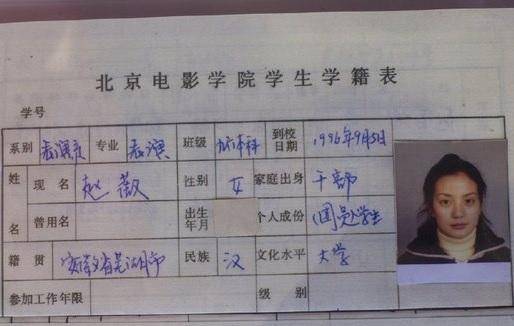 北京电影学院学生学籍表
学号
系别 表演系 专业 表演 班级 96本科 到校日期 1996年9月5日
姓名 现名 赵薇 性别 女 家庭出身 干部
曾用名 出生年月 个人成份 团员学生
籍贯 安徽省芜湖市 民族 汉 文化水平 大学
参加工作年限 级别